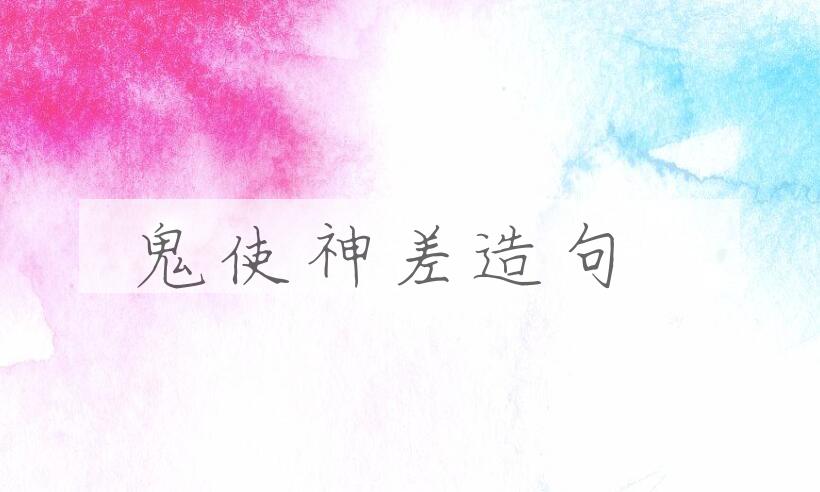 鬼使神差造句